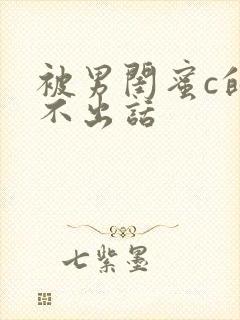 被男閨蜜c的
不出話
七紫墨